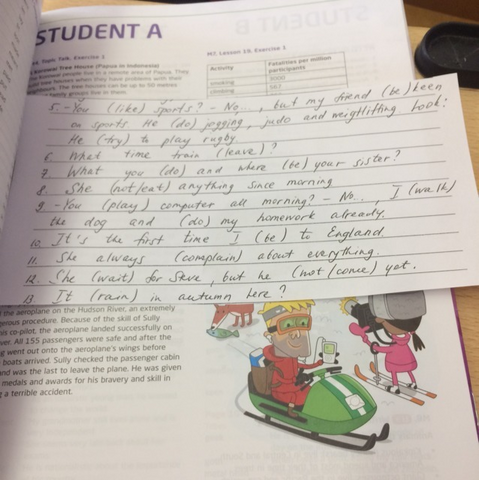 STUDENT A
Topic Talk. Exercise 1
Korowai Tree House (Papua in Indonesia)
people live in a remote area of Papua. They
tree houses when they have problems with their
The tree houses can be up to 50 metres
family groups live in them.
H7. Lesson 19. Exercise 1
Activity Fatalities per million participants
smoking 3000
climbing
5. -You (like) sports? - No.., but my friend (be) keen
on sports. He (do) jogging, judo and weightlifting. Look!
He (try) to play rugby
6. What time train (leave)?
7. What you (do) and where (be) your sister?
8. She (not/eat) anything since morning
9 -You (play) computer all morning? - No.., I (walk)
the dog and (do) my homework already.
10. It's the first time I (be) to England
11. She always (complain) about everything.
12. She (wait) for Steve, but he (not/come) yet.
13 It (rain) in autumn here?
the aeroplane on the Hudson River, an extremely
gerous procedure. Because of the skill of Sully
his co-pilot, the aeroplane landed successfully on
ver. All 155 passengers were safe and after the
g went out onto the aeroplane's wings before
boats arrived. Sully checked the passenger cabin
and was the last to leave the plane. He was given
medals and awards for his bravery and skill in
g a terrible accident.